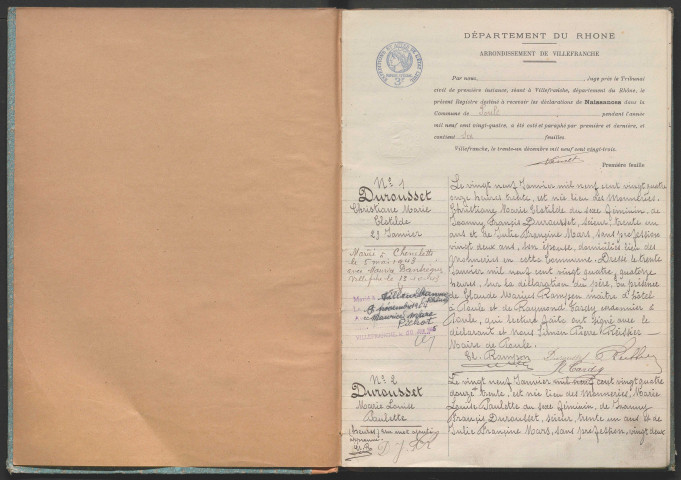 DÉPARTEMENT DU RHONE
ARRONDISSEMENT DE VILLEFRANCHE
Par nous, Juge près le Tribunal
civil de première instance, séant à Villefranche, département du Rhône, le
présent Registre destiné à recevoir les déclarations de Naissances dans la
Commune de Poule pendant l'année
mil neuf cent vingt-quatre, a été coté et paraphé par première et dernière, et
contient feuilles.
Villefranche, le trente-un décembre mil neuf cent vingt-trois.
Première feuille
N° 1
Durousset
Christiane Marie
Clotilde
29 Janvier
Mariée à Chenelette
le 8 mai 1948
avec Maurice
Marié à
le
Maurice Marc
Pichot
VILLEFRANCHE, le
Le vingt neuf Janvier mil neuf cent vingt quatre
onze heures trente, est née lieu des Monneries,
Christiane Marie Clotilde du sexe féminin, de
Joanny Francis Durousset, scieur, trente un
ans et de Julie Françine Mars, sans profession
vingt deux ans, son épouse, domiciliés lieu des
Monneries en cette Commune. Dressé le trente
Janvier mil neuf cent vingt quatre, quatorze
heures, sur la déclaration du père, en présence
de Claude Marius Rampon maître d'hôtel
à Poule et de Raymond Tardy à
Poule, qui lecture faite ont signé avec le
déclarant et nous Simon Pierre
Maire de Poule.
Cl. Rampon
R Tardy
N° 2
Durousset
Marie Louise
Paulette
un mot
Le vingt neuf Janvier mil neuf cent vingt quatre
douze trente, est née lieu des Monneries, Marie
Louise Paulette du sexe féminin, de Joanny
Francis Durousset, scieur, trente un ans et de
Julie Françine Mars, sans profession, vingt deux